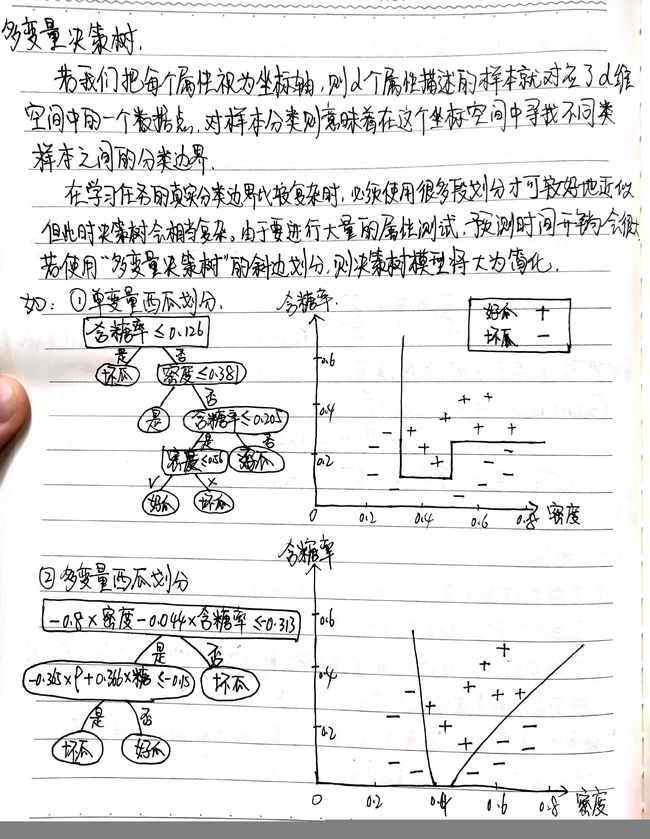 多变量决策树.
若我们把每个属性视为坐标轴,则d个属性描述的样本就对应了d维
空间中的一个数据点,对样本分类则意味着在这个坐标空间中寻找不同类
样本之间的分类边界.
在学习任务的真实分类边界比较复杂时,必须使用很多段划分才可较好地近似
但此时决策树会相当复杂,由于要进行大量的属性测试,预测时间开销会很
若使用"多变量决策树"的斜边划分,则决策树模型将大为简化.
如: ①单变量西瓜划分.
含糖率≤0.126
是 否
坏瓜 密度≤0.381
否
是 含糖率≤0.205
是 否
密度≤0.56 好瓜
√ ×
好瓜 坏瓜
含糖率.
好瓜 +
坏瓜 −
0.6
0.4
0.2
0 0.2 0.4 0.6 0.8 密度
②多变量西瓜划分
-0.8×密度-0.044×含糖率≤-0.313
是 否
-0.365×ρ+0.366×糖≤-0.15 坏瓜
是 否
坏瓜 好瓜
含糖率
0.6
0.4
0.2
0 0.2 0.4 0.6 0.8 密度